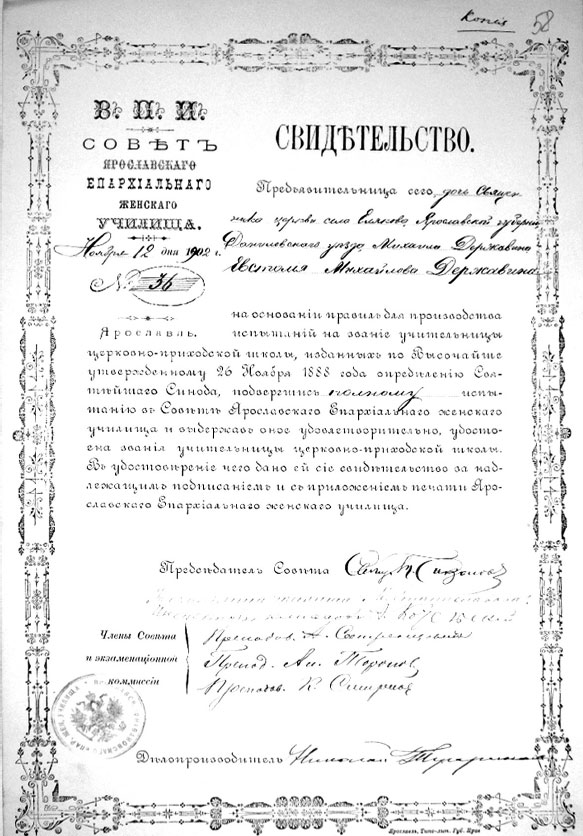 Копія
58
В. П. И.
СОВѢТЪ
ЯРОСЛАВСКАГО
ЕПАРХІАЛЬНАГО
ЖЕНСКАГО
УЧИЛИЩА.
Ноября 12 дня 1902 г.
№ 36
Ярославль.
СВИДѢТЕЛЬСТВО.
Предъявительница сего, дочь Священ-
ника церкви села Ярославской губерніи
Даниловскаго уѣзда Михаила Державина
Михайлова Державина
на основаніи правилъ для производства
испытаній на званіе учительницы
церковно-приходской школы, изданныхъ по Высочайше
утвержденному 26 Ноября 1888 года опредѣленію Свя-
тѣйшаго Синода, подверглась полному испы-
танію въ Совѣтѣ Ярославскаго Епархіальнаго женскаго
училища и выдержавъ оное удовлетворительно, удосто-
ена званія учительницы церковно-приходской школы.
Въ удостовѣреніе чего дано ей сіе свидѣтельство за над-
лежащимъ подписаніемъ и съ приложеніемъ печати Яро-
славскаго Епархіальнаго женскаго училища.
Предсѣдатель Совѣта Свящ.
Члены Совѣта
и экзаменаціонной
коммиссіи
Преподав.
Препод. Ал.
Преподав. К. Смирнов
Дѣлопроизводитель Николай
Ярославль, Типо-лит. Губ. Прав.